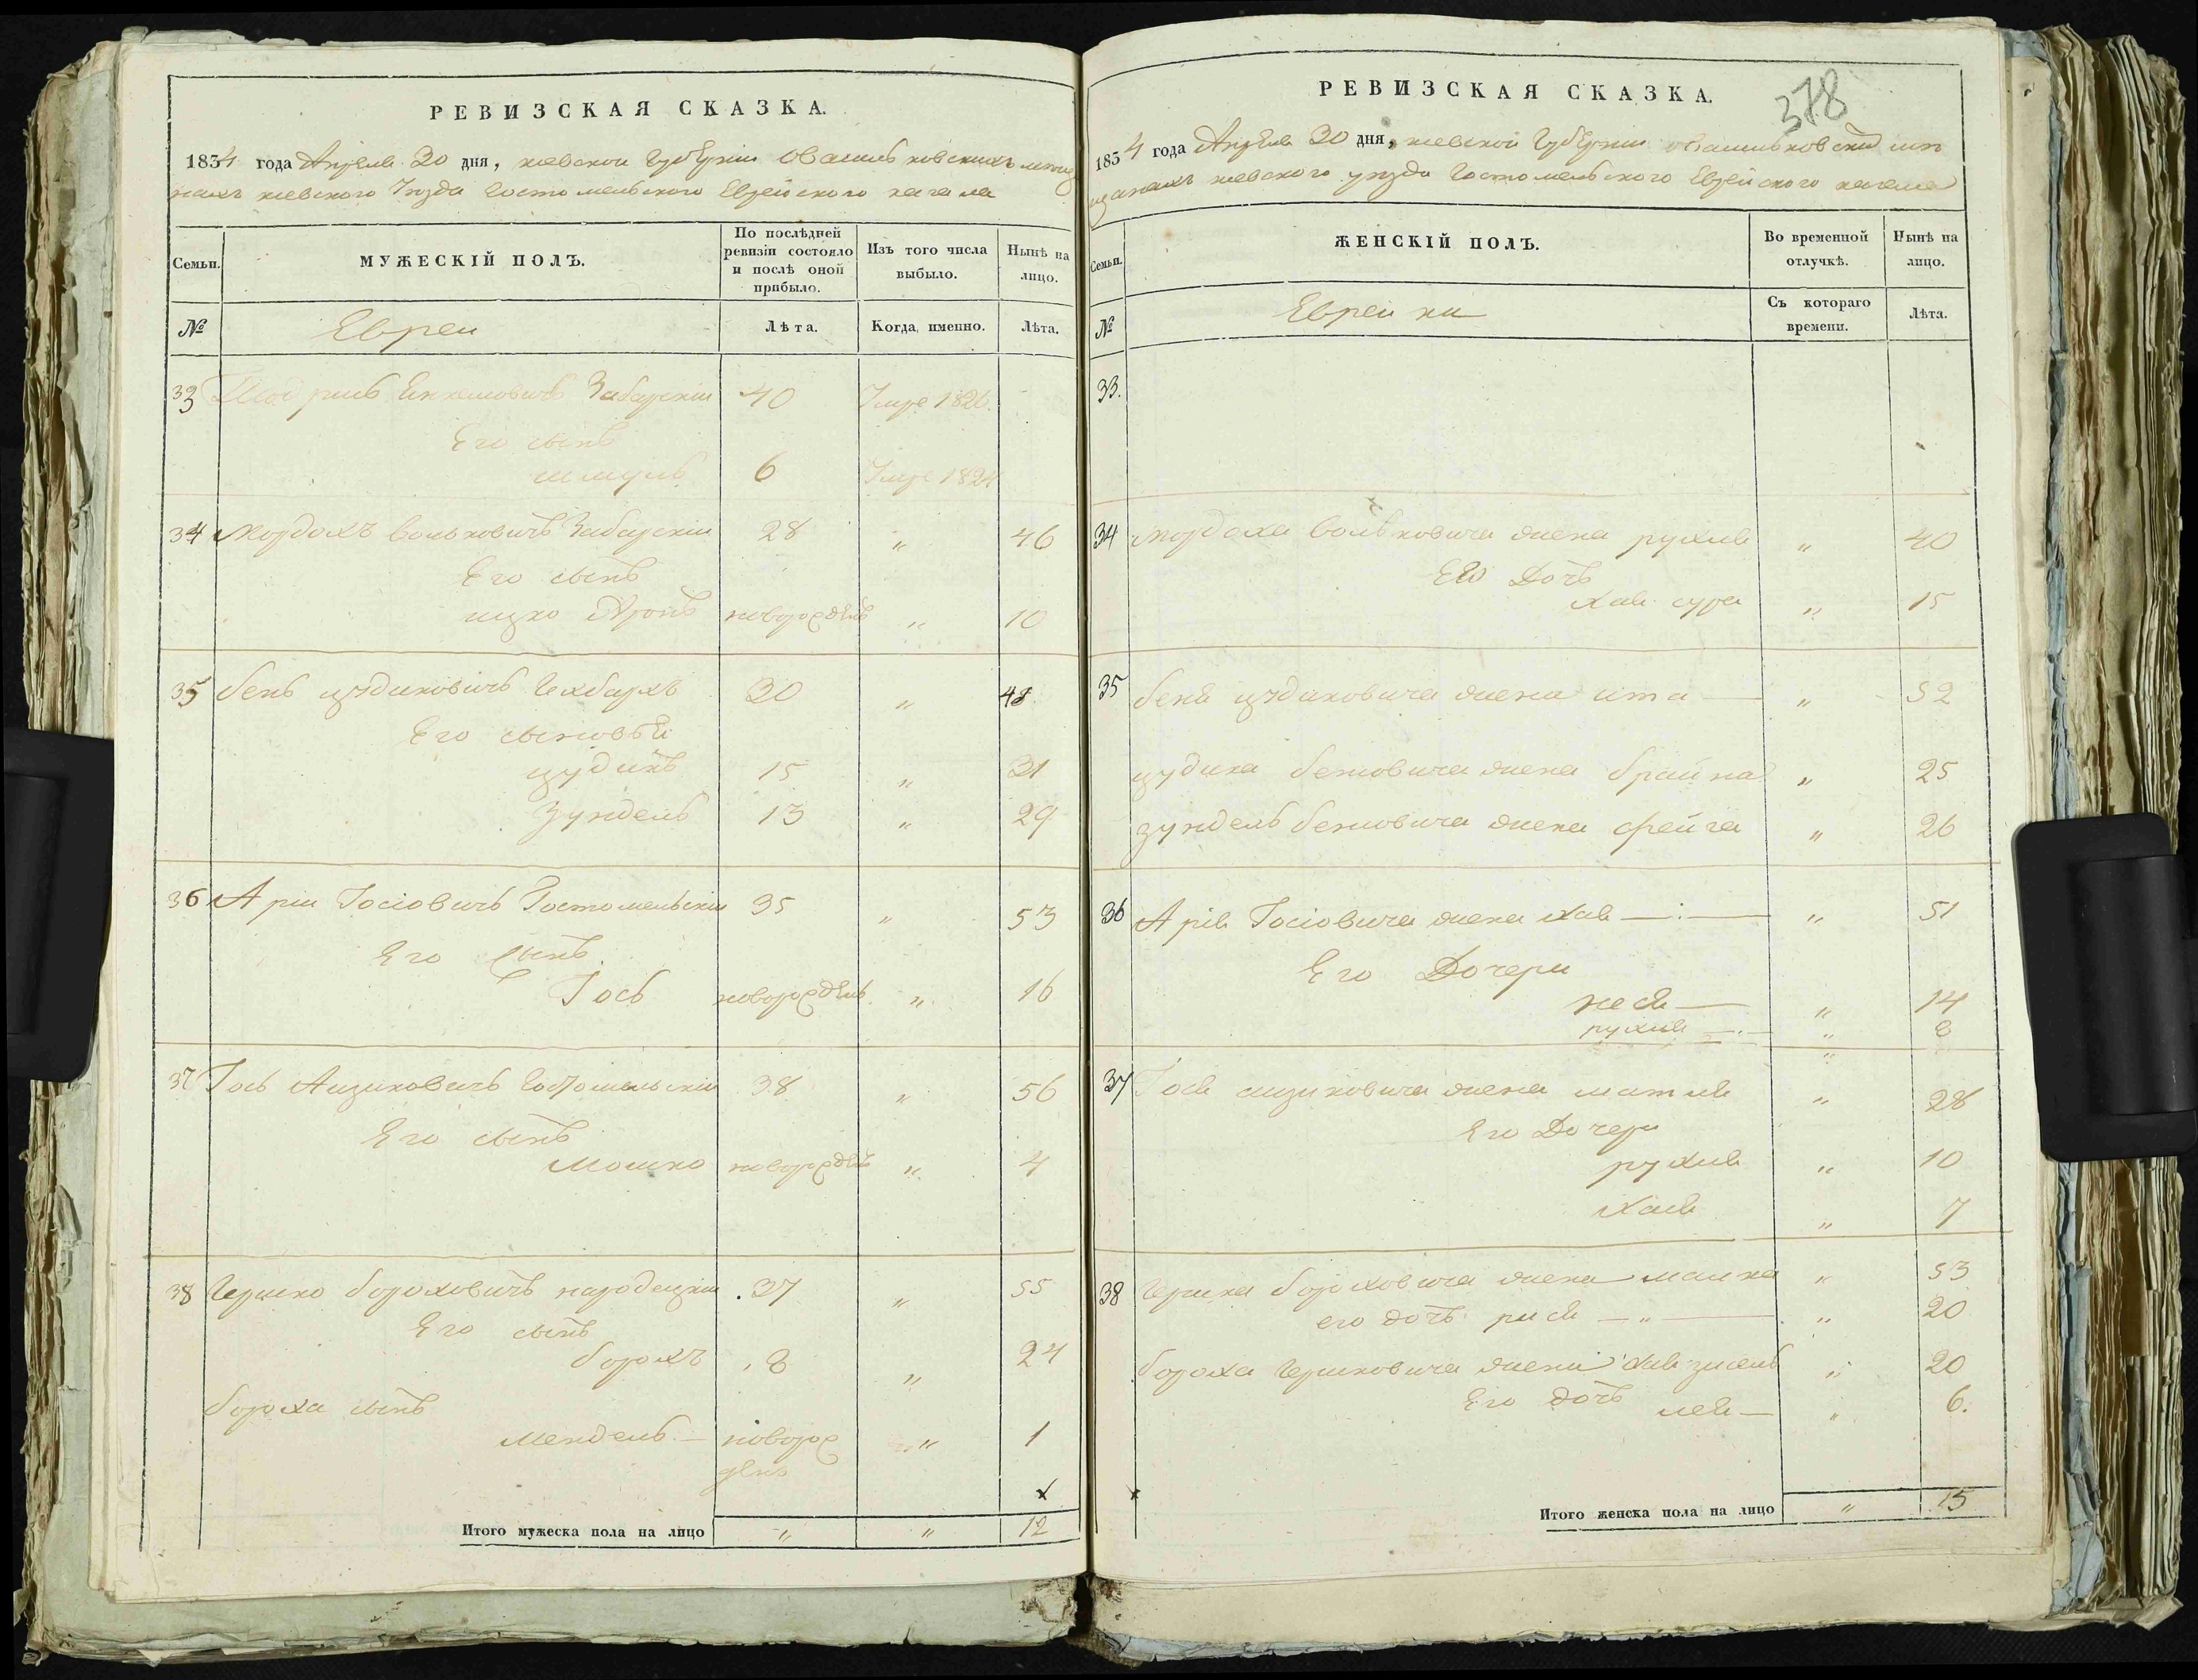 РЕВИЗСКАЯ СКАЗКА.
1834 года Апреля 20 дня, киевской Губернии о Васильковскихъ мещанахъ киевского Уезда Гостомельского Еврейского кагала
Семьи.
МУЖЕСКІЙ ПОЛЪ.
По послѣдней ревизіи состояло и послѣ оной прибыло.
Изъ того числа выбыло.
Нынѣ на лицо.
№
Евреи
Лѣта.
Когда именно.
Лѣта.
33 Енкелевичъ Забарскій 40 Умре 1826.
Его сынъ
шмуль 6 Умре 1824
34 Мордохъ Вольковичъ Забарскій 28 „ 46
Его сынъ
ицко Аронъ новорожденъ „ 10
35 бень цудиковичъ 30 „ 48
Его сыновья
цудикъ 15 „ 31
зундель 13 „ 29
36 Аріи Іосіовичъ Гостомельскій 35 „ 53
Его сынъ
Іось новорожденъ „ 16
37 Іось Аизиковичъ Гостомельскій 38 „ 56
Его сынъ
Мошко новорожденъ „ 4
38 Гершко бороховичъ народецкій 37 „ 55
Его сынъ
борохъ 8 „ 24
бороха сынъ
Мендель — новорож „ 1
денъ
х
Итого мужеска пола на лицо „ „ 12
378
РЕВИЗСКАЯ СКАЗКА.
1834 года Апреля 20 дня, киевской Губернии о Васильковских мещанахъ киевского уезда Гостомельского Еврейского кагала
Семьи.
ЖЕНСКІЙ ПОЛЪ.
Во временной отлучкѣ.
Нынѣ на лицо.
№
Еврейки
Съ котораго времени.
Лѣта.
33.
34 Мордоха Вольковича жена рухля „ 40
Его Дочь
хая сура „ 15
35 беня цудиковича жена ита — „ 52
цудика беньовича жена брайна „ 25
зундель беньовича жена фейга „ 26
36 Арія Іосіовича жена хая — „ 51
Его Дочери
неся — „ 14
рухля — „ 8
„
37 Іося аизиковича жена матля „ 28
Его Дочери
рухля „ 10
хася „ 7
38 Гершка бороховича жена малка „ 53
его дочь рися — „ — „ 20
бороха Гершковича жена хая зисель „ 20
Его дочь лея — „ 6.
х
Итого женска пола на лицо „ 15